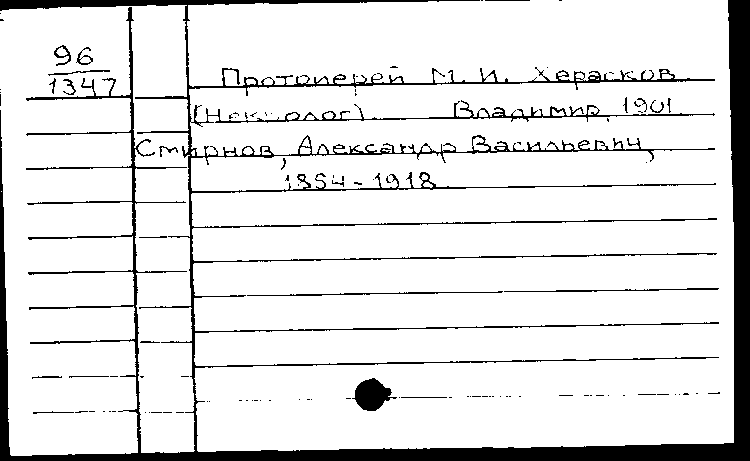 96
1347
Протоиерей М. И. Херасков
(Некролог). Владимир, 1901
Смирнов, Александр Васильевич,
1854-1918